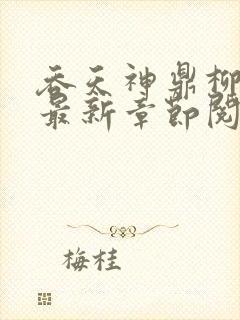 吞天神鼎柳
最新章节阅
梅桂